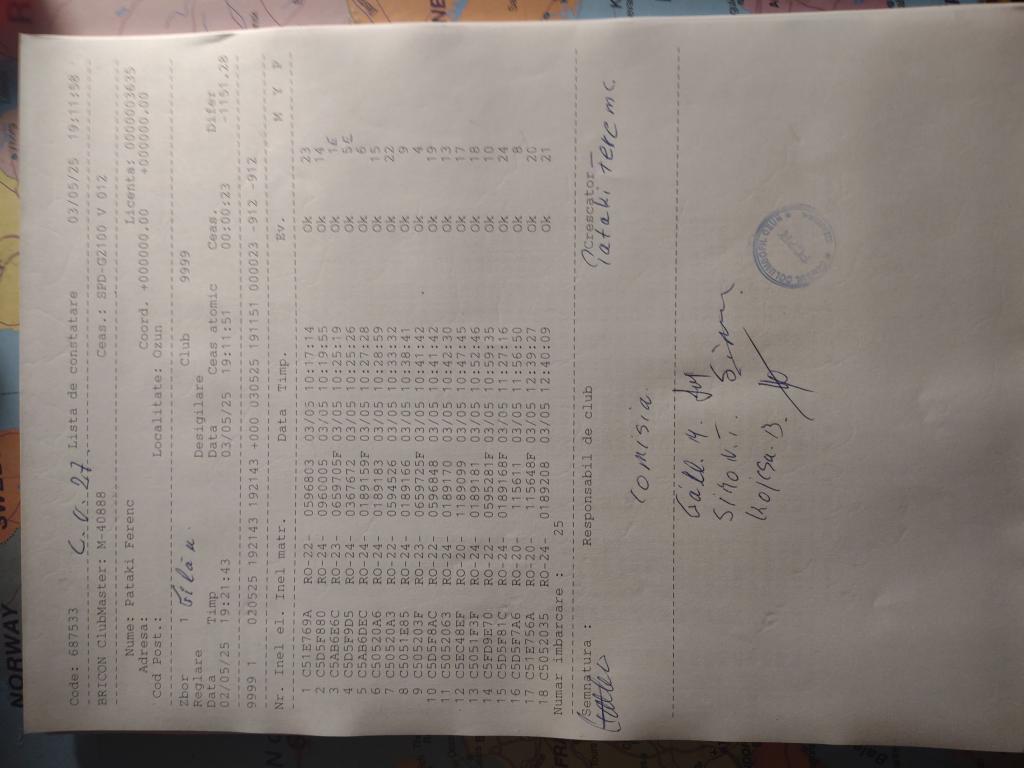 Code: 687533 C.V. 27 Lista de constatare 03/05/25 19:11:58
BRICON ClubMaster: M-40888 Ceas.: SPD-G2100 V 012
Nume: Pataki Ferenc Licenta: 0000003635
Adresa: Coord. +000000.00 +000000.00
Cod Post.: Localitate: Ozun
Zbor 1 Filău Club 9999
Reglare Desigilare
Data Timp Data Ceas atomic Ceas. Difer
02/05/25 19:21:43 03/05/25 19:11:51 00:00:23 -1151.28
9999 1 020525 192143 192143 +000 030525 191151 000023 -912 -912
Nr. Inel el. Inel matr. Data Timp. Ev. M Y F
1 C51E769A RO-22- 0596803 03/05 10:17:14 Ok 23
2 C5D5F880 RO-24- 0960005 03/05 10:19:55 Ok 14
3 C5AB6E6C RO-23- 0659705F 03/05 10:25:19 Ok 16
4 C5D5F9D5 RO-24- 0367697 03/05 10:25:26 Ok 5
5 C5AB6DEC RO-24- 0189159F 03/05 10:27:28 Ok 6
6 C50520A6 RO-24- 0189183 03/05 10:28:59 Ok 15
7 C50520A3 RO-22- 0594526 03/05 10:33:32 Ok 22
8 C5051E85 RO-24- 0189166 03/05 10:38:41 Ok 9
9 C505203F RO-23- 0659725F 03/05 10:41:42 Ok 4
10 C5D5F8AC RO-22- 0596848 03/05 10:41:42 Ok 19
11 C5052063 RO-24- 0189170 03/05 10:42:30 Ok 13
12 C5EC48EF RO-20- 1189099 03/05 10:47:45 Ok 17
13 C5051F3F RO-24- 0189181 03/05 10:52:46 Ok 18
14 C5FD9E70 RO-22- 0595281F 03/05 10:59:35 Ok 10
15 C5D5F81C RO-24- 0189168F 03/05 11:27:16 Ok 24
16 C5D5F7A6 RO-20- 115611 03/05 11:56:50 Ok 8
17 C51E756A RO-20- 115648F 03/05 12:39:27 Ok 20
18 C5052035 RO-24- 0189208 03/05 12:40:09 Ok 21
Numar imbarcare : 25
Semnatura : Responsabil de club Crescator
Pataki Ferenc
Comisia
Gáll. M.
Simó N. I.
Kojcsa. B.